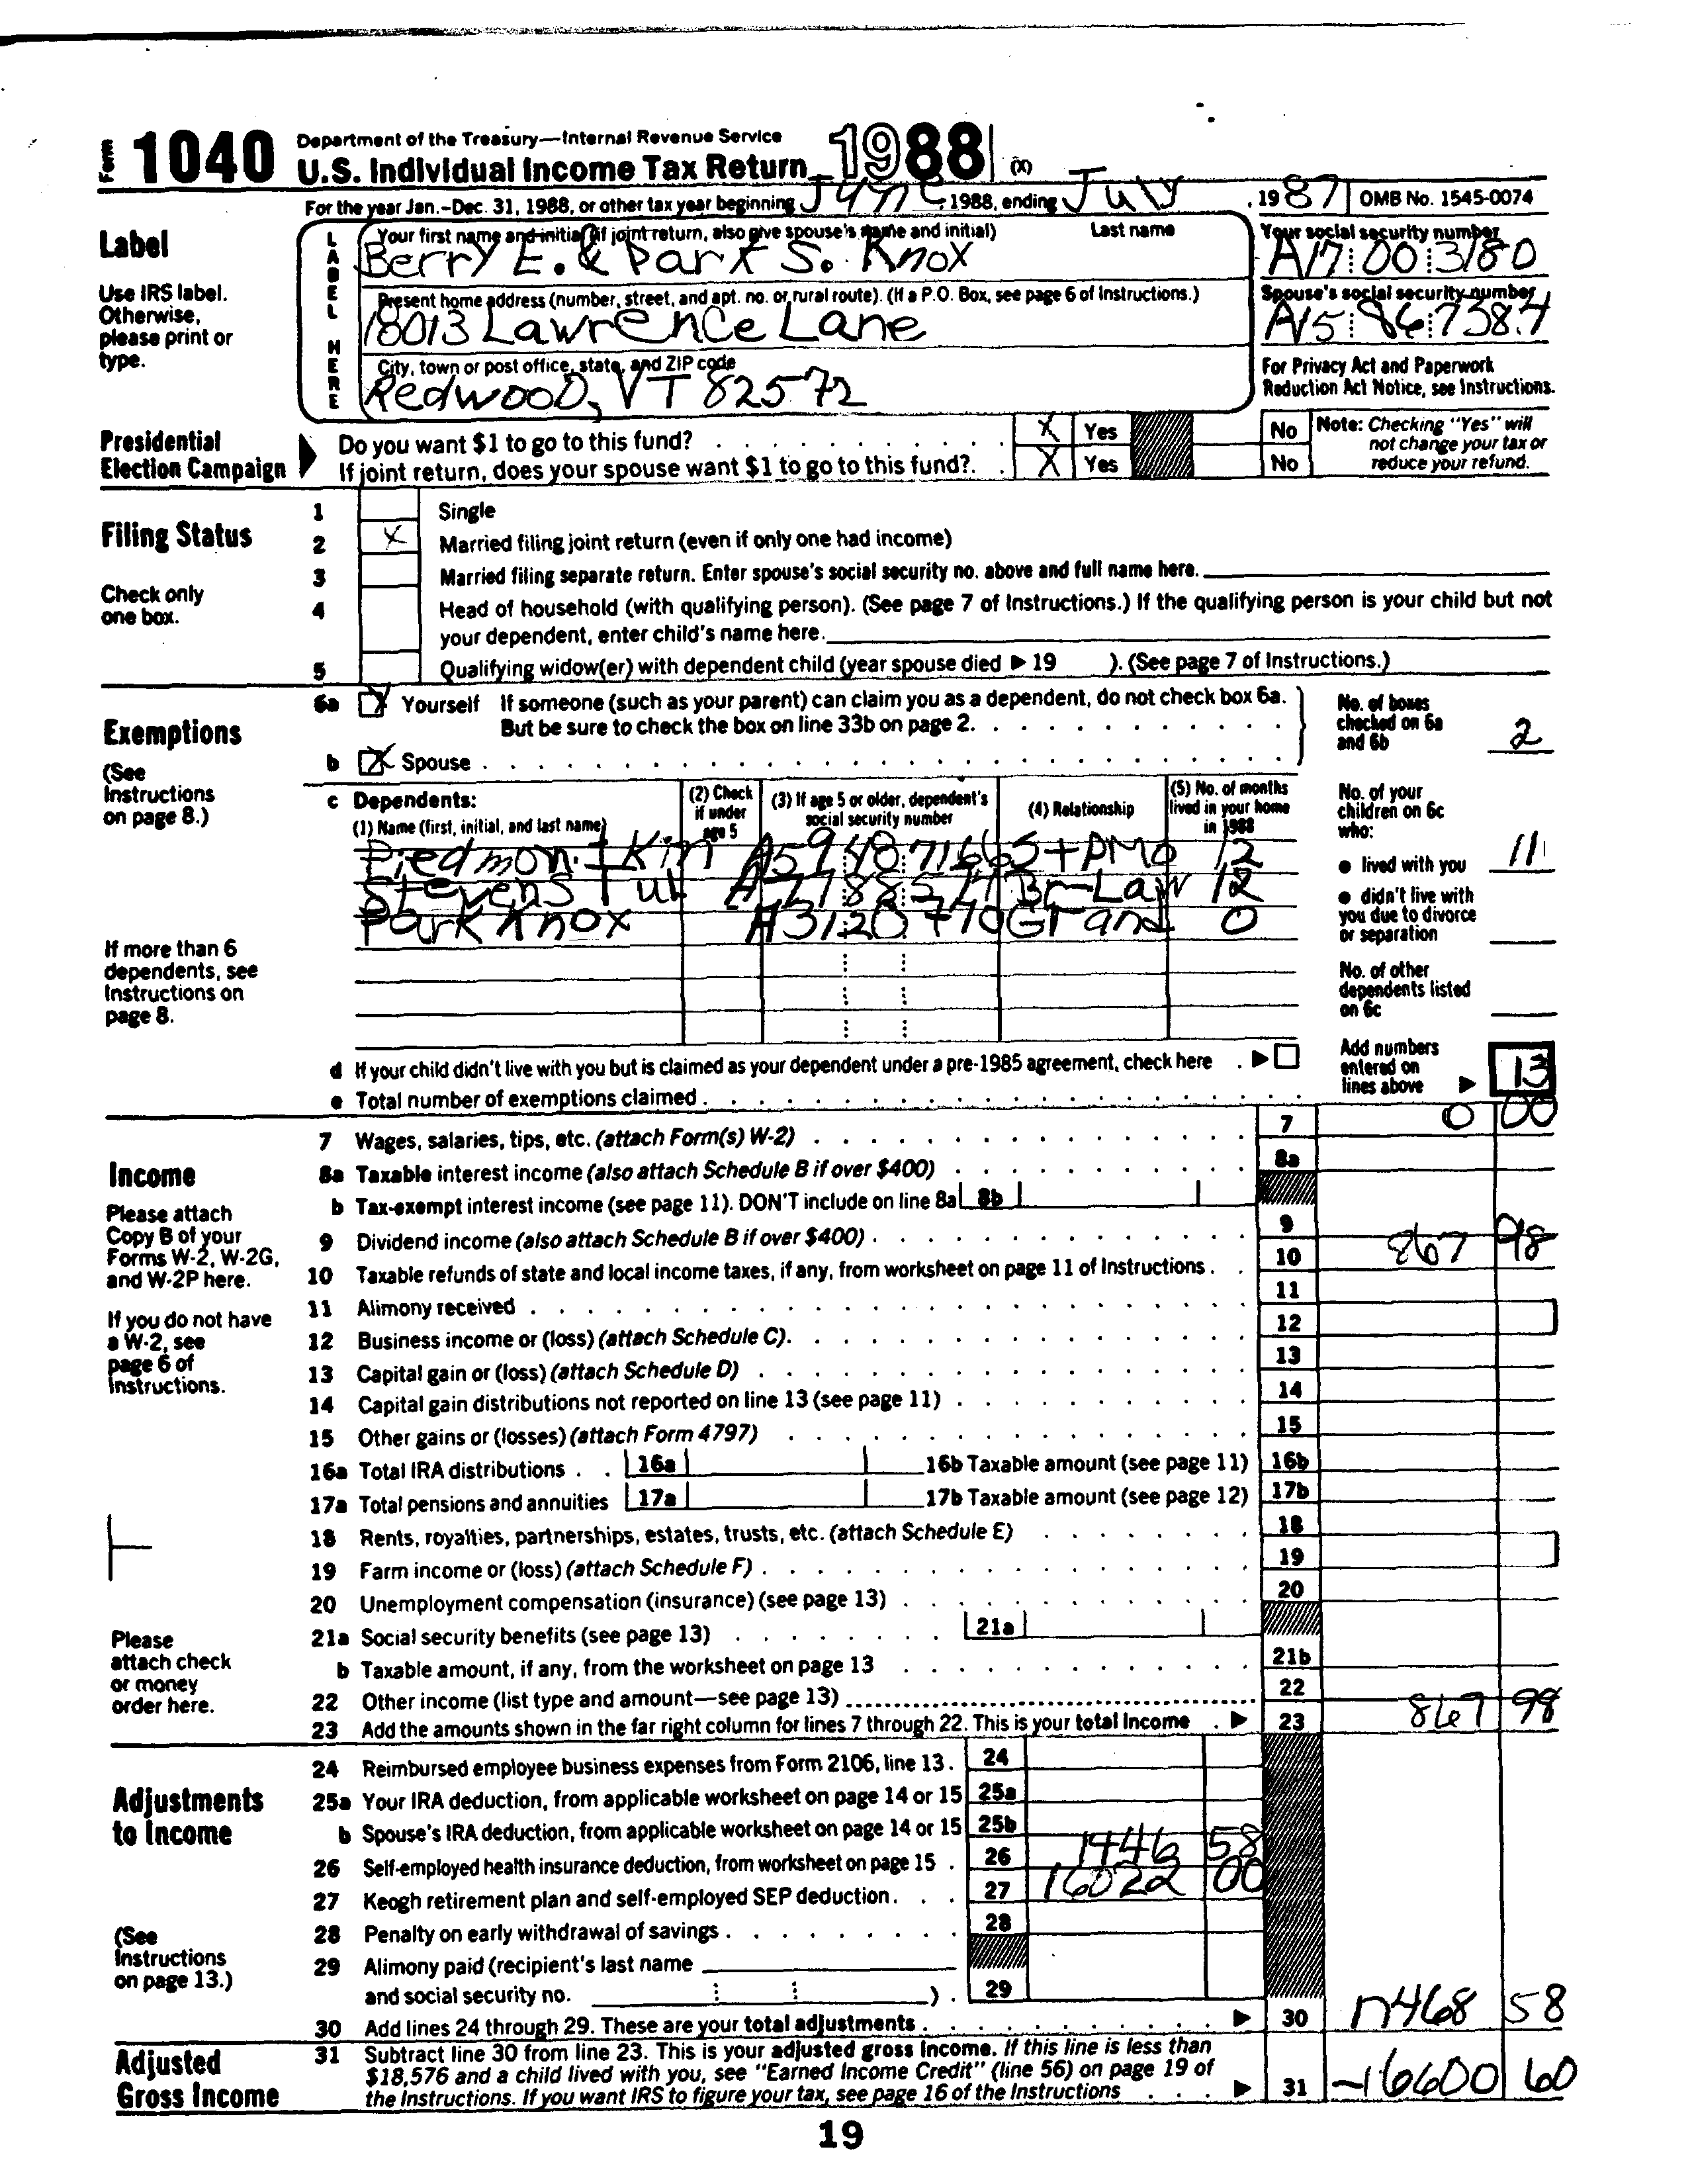 Form 1040 Department of the Treasury—Internal Revenue Service
U.S. Individual Income Tax Return 1988 (X)
For the year Jan.-Dec. 31, 1988, or other tax year beginning , 1988, ending July , 19 87 OMB No. 1545-0074
Label
Use IRS label.
Otherwise,
please print or
type.
LABEL HERE
Your first name and initial (if joint return, also give spouse's name and initial) Last name
Berry E. & Park S. Knox
Your social security number
A17:00:3180
Present home address (number, street, and apt. no. or rural route). (If a P.O. Box, see page 6 of Instructions.)
18013 Lawrence Lane
Spouse's social security number
City, town or post office, state, and ZIP code
Redwood, VT 82572
For Privacy Act and Paperwork
Reduction Act Notice, see Instructions.
Presidential
Election Campaign
Do you want $1 to go to this fund? X Yes No
If joint return, does your spouse want $1 to go to this fund? X Yes No
Note: Checking "Yes" will
not change your tax or
reduce your refund.
Filing Status
Check only
one box.
1 Single
2 X Married filing joint return (even if only one had income)
3 Married filing separate return. Enter spouse's social security no. above and full name here.
4 Head of household (with qualifying person). (See page 7 of Instructions.) If the qualifying person is your child but not
your dependent, enter child's name here.
5 Qualifying widow(er) with dependent child (year spouse died ▶ 19 ). (See page 7 of Instructions.)
Exemptions
(See
Instructions
on page 8.)
6a X Yourself If someone (such as your parent) can claim you as a dependent, do not check box 6a.
But be sure to check the box on line 33b on page 2.
b X Spouse
No. of boxes
checked on 6a
and 6b 2
c Dependents:
(1) Name (first, initial, and last name)
(2) Check
if under
age 5
(3) If age 5 or older, dependent's
social security number
(4) Relationship
(5) No. of months
lived in your home
in 1988
Piedmont Kim StPMo 12
Stevens Br-Law 12
Park Knox Grand 0
If more than 6
dependents, see
Instructions on
page 8.
No. of your
children on 6c
who:
● lived with you 11
● didn't live with
you due to divorce
or separation
No. of other
dependents listed
on 6c
d If your child didn't live with you but is claimed as your dependent under a pre-1985 agreement, check here ▶
e Total number of exemptions claimed
Add numbers
entered on
lines above ▶ 13
Income
Please attach
Copy B of your
Forms W-2, W-2G,
and W-2P here.
If you do not have
a W-2, see
page 6 of
Instructions.
Please
attach check
or money
order here.
7 Wages, salaries, tips, etc. (attach Form(s) W-2) 7 0 00
8a Taxable interest income (also attach Schedule B if over $400) 8a
b Tax-exempt interest income (see page 11). DON'T include on line 8a 8b
9 Dividend income (also attach Schedule B if over $400) 9
10 Taxable refunds of state and local income taxes, if any, from worksheet on page 11 of Instructions 10 867 98
11 Alimony received 11
12 Business income or (loss) (attach Schedule C) 12
13 Capital gain or (loss) (attach Schedule D) 13
14 Capital gain distributions not reported on line 13 (see page 11) 14
15 Other gains or (losses) (attach Form 4797) 15
16a Total IRA distributions 16a 16b Taxable amount (see page 11) 16b
17a Total pensions and annuities 17a 17b Taxable amount (see page 12) 17b
18 Rents, royalties, partnerships, estates, trusts, etc. (attach Schedule E) 18
19 Farm income or (loss) (attach Schedule F) 19
20 Unemployment compensation (insurance) (see page 13) 20
21a Social security benefits (see page 13) 21a
b Taxable amount, if any, from the worksheet on page 13 21b
22 Other income (list type and amount—see page 13) 22
23 Add the amounts shown in the far right column for lines 7 through 22. This is your total income ▶ 23 867 98
Adjustments
to Income
(See
Instructions
on page 13.)
24 Reimbursed employee business expenses from Form 2106, line 13 24
25a Your IRA deduction, from applicable worksheet on page 14 or 15 25a
b Spouse's IRA deduction, from applicable worksheet on page 14 or 15 25b
26 Self-employed health insurance deduction, from worksheet on page 15 26 1446 58
27 Keogh retirement plan and self-employed SEP deduction 27 16022 00
28 Penalty on early withdrawal of savings 28
29 Alimony paid (recipient's last name
and social security no. ) 29
30 Add lines 24 through 29. These are your total adjustments ▶ 30 17468 58
Adjusted
Gross Income
31 Subtract line 30 from line 23. This is your adjusted gross income. If this line is less than
$18,576 and a child lived with you, see "Earned Income Credit" (line 56) on page 19 of
the Instructions. If you want IRS to figure your tax, see page 16 of the Instructions ▶ 31 -16600 60
19